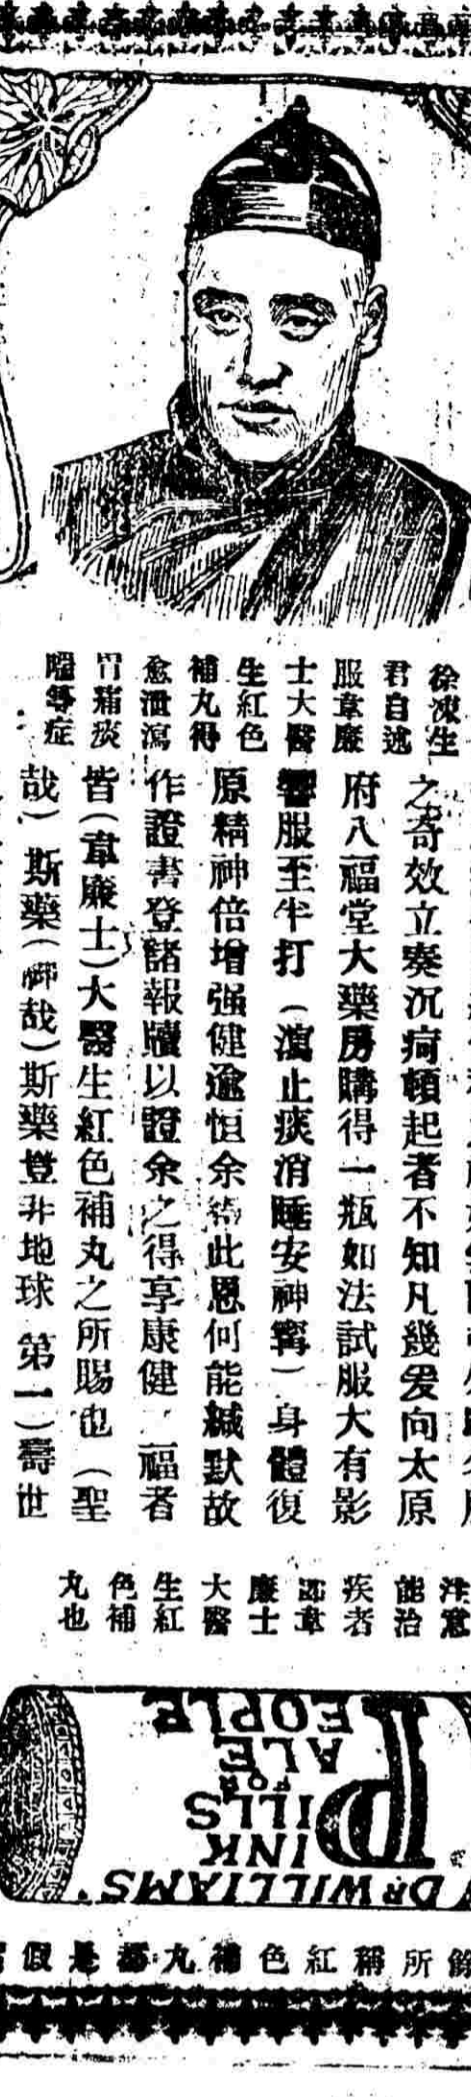 徐涑生
君自述
服韋廉
士大醫
生紅色
補丸得
愈泄瀉
胃痛痰
喘等症
之奇效立奏沉疴頓起者不知凡幾爰向太原
府八福堂大藥房購得一瓶如法試服大有影
響服至半打(瀉止痰消睡安神寗)身體復
原精神倍增强健逾恒余此恩何能緘默故
作證書登諸報牘以證余之得享康健福者
皆(韋廉士)大醫生紅色補丸之所賜也(聖
哉)斯藥(哉)斯藥豈非地球第一)壽世
注意
能治
疾者
韋
廉士
大醫
生紅
色補
丸也
DR WILLIAMS'
PINK
PILLS
FOR
PALE
PEOPLE
所稱紅色補丸都是假